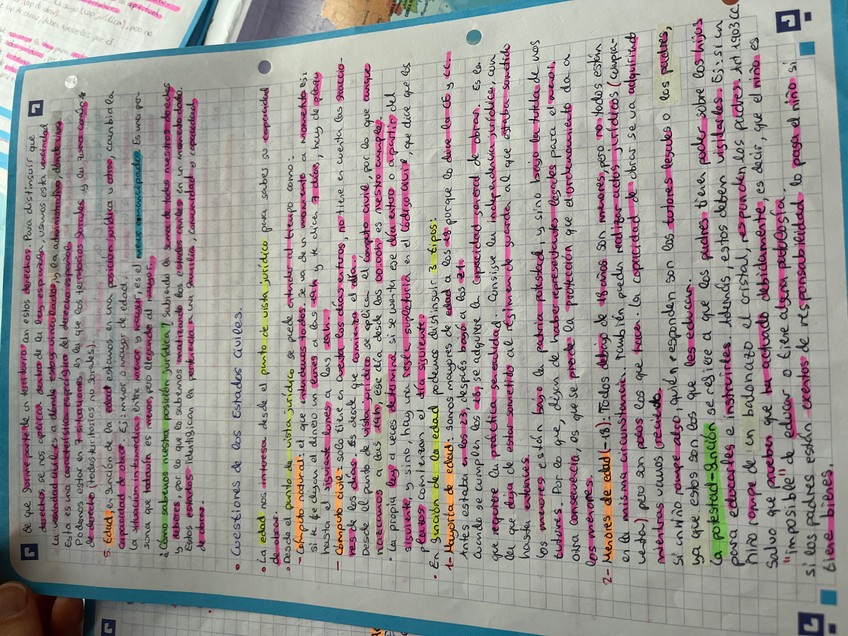 de que forme parte de un territorio con estos derechos. Para distinguir que
derechos se nos aplican dentro de la ley española, usamos esta vecindad.
La vecindad civil es a dónde estoy vinculado, y la administrativa, donde vivo.
Esta es una característica específica del derecho español.
Podemos estar en 7 situaciones, en la que los territorios forales y la zona común
de derecho (todos territorios no forales).
5. Edad: en función de la edad estamos en una posición jurídica u otra, cambian la
capacidad de obrar. Ej: menor o mayor de edad.
La situación intermedia entre menor y mayor, es el menor emancipado. Es una per-
sona que todavía es menor, pero llegando al mayor.
¿Cómo sabemos nuestra posición jurídica? Sabiendo la suma de todos nuestros derechos
y deberes, por lo que lo sabremos analizando los estados civiles en un momento dado.
Estos estados identifican la pertenencia a una familia, comunidad o capacidad
de obrar.
• Cuestiones de los Estados Civiles.
• La edad nos interesa desde el punto de vista jurídico para saber su capacidad
de obrar.
• Desde el punto de vista jurídico se puede entender el tiempo como:
- Cómputo natural: el que entendemos todos, se va de un momento a momento. Ej:
si te dejan el dinero un lunes a las y te dicen 7 días, hay de plazo
hasta el siguiente lunes a las
- Cómputo civil: solo tiene en cuenta los días enteros, no tiene en cuenta las fraccio-
nes de los días. Es desde que comienza el día.
Desde el punto de vista jurídico se aplica el cómputo civil, por lo que aunque
nazcamos a las ese día desde las 00:00h es nuestro cumple.
• La propia ley a veces determina si se cuenta ese día entero o a partir del
siguiente, y sino, hay una regla supletoria en el código civil, que dice que los
plazos comienzan el día siguiente.
• En función de la edad podemos distinguir 3 tipos:
1- Mayoría de edad: somos mayores de edad a los 18 porque lo dice la CE y CC.
Antes estaba en los 23, después bajó a los 21.
Cuando se cumplen los 18, se adquiere la capacidad general de obrar. Es la
que requiere la práctica generalidad. Consigue la independencia jurídica, con
la que deja de estar sometido al régimen de guarda al que estaba sometido
hasta entonces.
Los menores están bajo la patria potestad, y sino bajo la tutela de unos
tutores. Por lo que, dejan de haber representantes legales para el menor.
Otra consecuencia, es que se pierde la protección que el ordenamiento da a
los menores.
2- Menores de edad (-18): Todos debajo de 18 años son menores, pero no todos están
en la misma circunstancia. También pueden realizar actos jurídicos (compra-
venta) pero son pocos los que hacen. La capacidad de obrar se va adquiriendo
mientras vamos creciendo.
Si un niño rompe algo, quién responden son los tutores legales o los padres,
ya que estos son los que los educan.
La potestad-función se refiere a que los padres tienen poder sobre los hijos
para educarles e instruirles. Además, estos deben vigilarles. Ej: si un
niño rompe de un balonazo el cristal, responden los padres. Art 1903 CC
Salvo que prueben que ha actuado debidamente, es decir, que el niño es
"imposible" de educar o tiene alguna patología.
Si los padres están exentos de responsabilidad lo paga el niño si
tiene bienes.